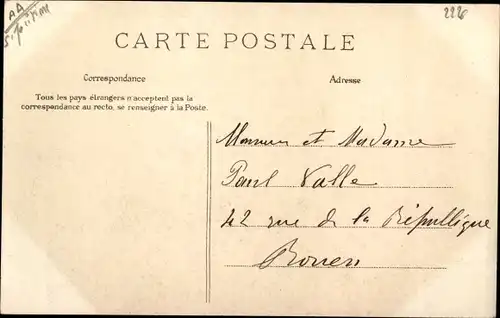 2226
CARTE POSTALE
Correspondance
Adresse
Tous les pays étrangers n'acceptent pas la
correspondance au recto, se renseigner à la Poste.
Monsieur et Madame
Paul Valle
42 rue de la République
Rouen